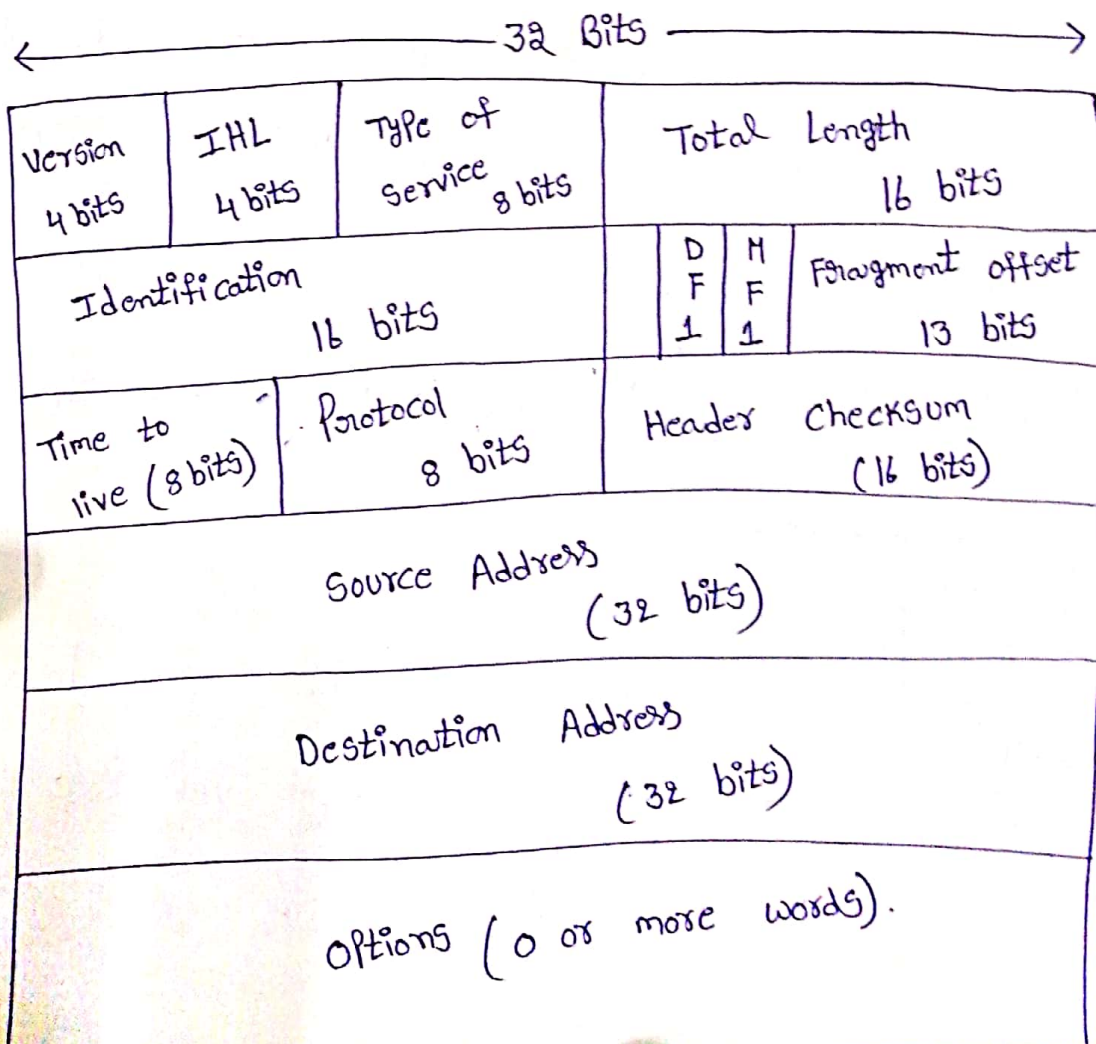 32 Bits
Version
4 bits
IHL
4 bits
Type of
Service
8 bits
Total Length
16 bits
Identification
16 bits
D
F
1
M
F
1
Fragment offset
13 bits
Time to
live (8 bits)
Protocol
8 bits
Header Checksum
(16 bits)
Source Address
(32 bits)
Destination Address
(32 bits)
Options (0 or more words).